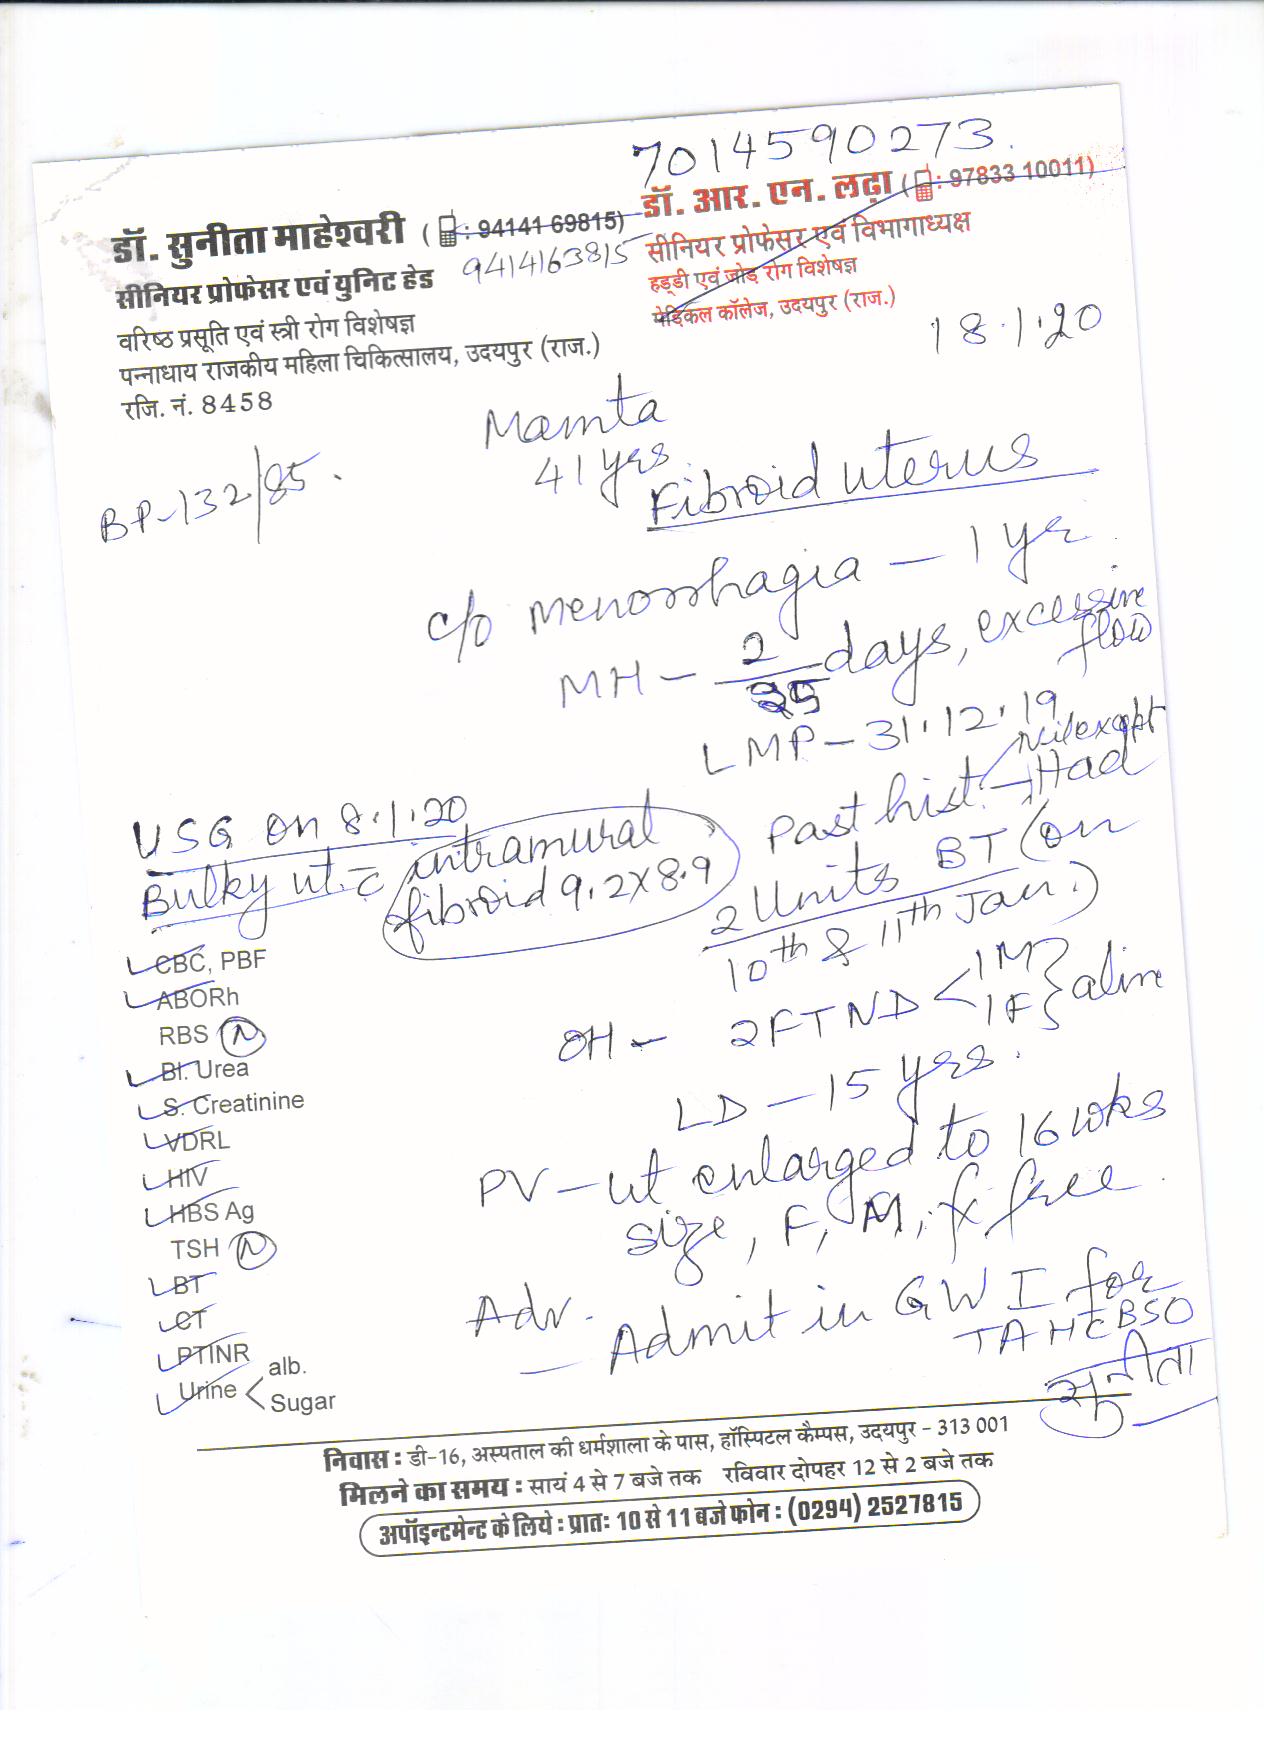 7014590273.
डॉ. सुनीता माहेश्वरी ( : 94141 69815)
9414163815
सीनियर प्रोफेसर एवं युनिट हेड
वरिष्ठ प्रसूति एवं स्त्री रोग विशेषज्ञ
पन्नाधाय राजकीय महिला चिकित्सालय, उदयपुर (राज.)
रजि. नं. 8458
डॉ. आर. एन. लढ़ा ( : 97833 10011)
सीनियर प्रोफेसर एवं विभागाध्यक्ष
हड्डी एवं जोड़ रोग विशेषज्ञ
मेडिकल कॉलेज, उदयपुर (राज.)
18.1.20
Mamta
41 yrs
BP-132/85.
Fibroid uterus
c/o Menorrhagia - 1 yr
MH - 2/35 days, excessive
flow
LMP - 31.12.19
Past hist. Nil except
→ Had
2 Units BT (on
10th & 11th Jan.)
OH - 2FTND < 1M 1F } alive
LD - 15 yrs.
PV - ut enlarged to 16 wks
size, F, M, fx free.
Adv.
- Admit in GW I for
TAH c̄ BSO
सुनीता
USG on 8.1.20
Bulky ut. c̄ intramural
fibroid 9.2x8.9
CBC, PBF
ABORh
RBS N
Bl. Urea
S. Creatinine
VDRL
HIV
HBS Ag
TSH N
BT
CT
PTINR
Urine < alb.
Sugar
निवास : डी-16, अस्पताल की धर्मशाला के पास, हॉस्पिटल कैम्पस, उदयपुर - 313 001
मिलने का समय : सायं 4 से 7 बजे तक रविवार दोपहर 12 से 2 बजे तक
अपॉइन्टमेन्ट के लिये : प्रातः 10 से 11 बजे फोन : (0294) 2527815